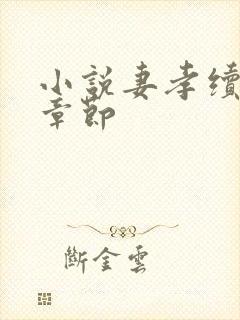 小說妻孝續
章節
斷金雲